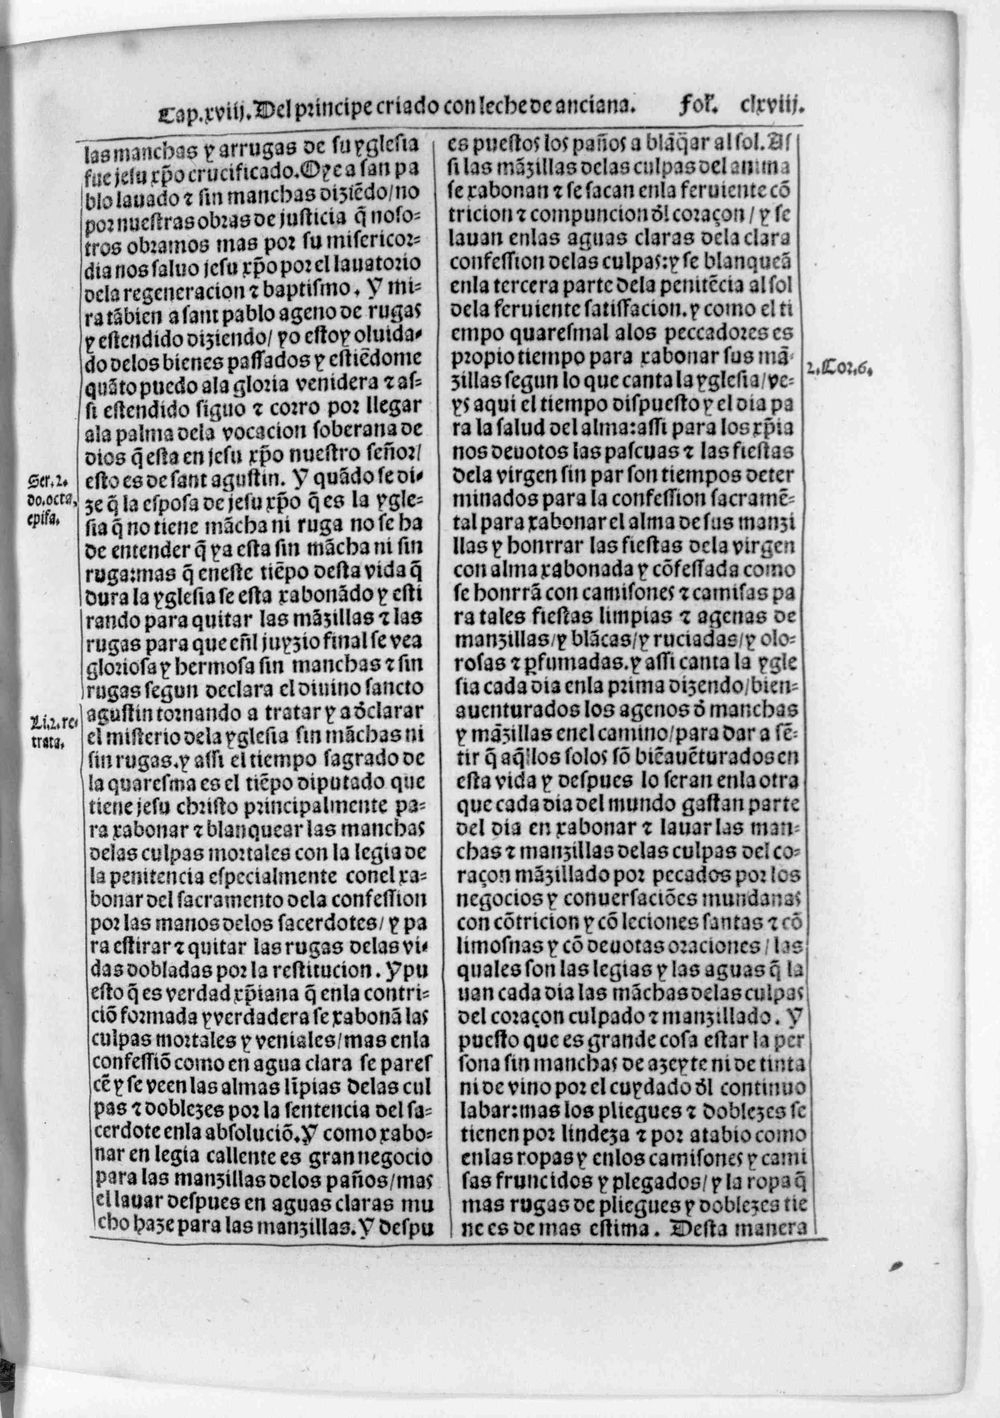 Cap.xviij.Del principe criado con leche de anciana. Fol. clxviij.
las manchas y arrugas de su yglesia
fue jesu xp̄o crucificado. Oye a san pa
blo lauado ⁊ sin manchas diziẽdo/no
por nuestras obras de justicia q̃ noso-
tros obramos mas por su misericor-
dia nos saluo jesu xp̄o por el lauatorio
dela regeneracion ⁊ baptismo. Y mi-
ra tãbien a sant pablo ageno de rugas
y estendido diziendo/yo estoy oluida-
do delos bienes passados y estiẽdome
quãto puedo ala gloria venidera ⁊ as-
si estendido siguo ⁊ corro por llegar
ala palma dela vocacion soberana de
dios q̃ esta en jesu xp̄o nuestro señor/
esto es de sant agustin. Y quãdo se di-
ze q̃ la esposa de jesu xp̄o q̃ es la ygle-
sia q̃ no tiene mãcha ni ruga no se ha
de entender q̃ ya esta sin mãcha ni sin
ruga:mas q̃ eneste tiẽpo desta vida q̃
dura la yglesia se esta xabonãdo y esti
rando para quitar las mãzillas ⁊ las
rugas para que eñl juyzio final se vea
gloriosa y hermosa sin manchas ⁊ sin
rugas segun declara el diuino sancto
agustin tornando a tratar y a dẽclarar
el misterio dela yglesia sin mãchas ni
sin rugas.y assi el tiempo sagrado de
la quaresma es el tiẽpo diputado que
tiene jesu christo principalmente pa-
ra xabonar ⁊ blanquear las manchas
delas culpas mortales con la legia de
la penitencia especialmente conel xa-
bonar del sacramento dela confession
por las manos delos sacerdotes/y pa
ra estirar ⁊ quitar las rugas delas vi-
das dobladas por la restitucion. Y pu
esto q̃ es verdad xp̄iana q̃ enla contri-
ciõ formada y verdadera se xabonã las
culpas mortales y veniales/mas enla
confessiõ como en agua clara se pares
cẽ y se veen las almas lĩpias delas cul
pas ⁊ doblezes por la sentencia del sa-
cerdote enla absoluciõ.Y como xabo-
nar en legia callente es gran negocio
para las manzillas delos paños/mas
el lauar despues en aguas claras mu
cho haze para las manzillas.Y despu
Ser.2.
do.octa.
epifa.
Li.2.re
trata.
es puestos los paños a blãq̃ar al sol.As
si las mãzillas delas culpas del anima
se xabonan ⁊ se sacan enla feruiente cõ
tricion ⁊ compuncion dl̃ coraçon/y se
lauan enlas aguas claras dela clara
confession delas culpas:y se blanqueã
enla tercera parte dela penitẽcia al sol
dela feruiente satisfacion.y como el ti
empo quaresmal alos peccadores es
propio tiempo para xabonar sus mã-
zillas segun lo que canta la yglesia/ve-
ys aqui el tiempo dispuesto y el dia pa
ra la salud del alma:assi para los xp̄ia
nos deuotos las pascuas ⁊ las fiestas
dela virgen sin par son tiempos deter
minados para la confession sacramẽ-
tal para xabonar el alma de sus manzi
llas y honrrar las fiestas dela virgen
con alma xabonada y cõfessada como
se honrrã con camisones ⁊ camisas pa
ra tales fiestas limpias ⁊ agenas de
manzillas/y blãcas/y ruciadas/y olo-
rosas ⁊ p̱fumadas.y assi canta la ygle
sia cada dia enla prima dizendo/bien-
auenturados los agenos d̃ manchas
y mãzillas enel camino/para dar a sẽ-
tir q̃ aq̃llos solos sõ biẽauẽturados en
esta vida y despues lo seran enla otra
que cada dia del mundo gastan parte
del dia en xabonar ⁊ lauar las man-
chas ⁊ manzillas delas culpas del co-
raçon mãzillado por pecados por los
negocios y conuersaciões mundanas
con cõtricion y cõ leciones santas ⁊ cõ
limosnas y cõ deuotas oraciones/las
quales son las legias y las aguas q̃ la
uan cada dia las mãchas delas culpas
del coraçon culpado ⁊ manzillado. Y
puesto que es grande cosa estar la per
sona sin manchas de azeyte ni de tinta
ni de vino por el cuydado dl̃ continuo
labar:mas los pliegues ⁊ doblezes se
tienen por lindeza ⁊ por atabio como
enlas ropas y enlos camisones y cami
sas fruncidos y plegados/y la ropa q̃
mas rugas de pliegues y doblezes tie
ne es de mas estima. Desta manera
2.Cor.6.